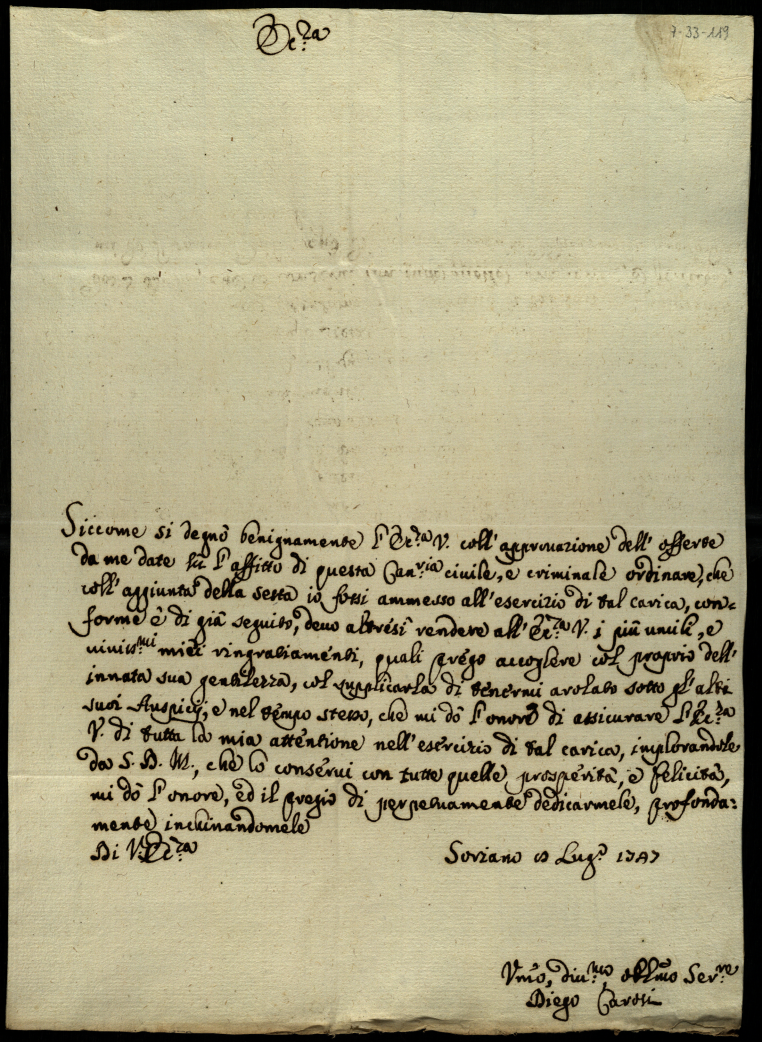 Ecc.za
7-33-119
Siccome si degnò benignamente l'Ecc.za V. coll'approvazione dell'offerte
da me date su l'affitto di questa Can.ria civile, e criminale ordinare, che
coll'aggiunta della sesta io fossi ammesso all'esercizio di tal carica, con=
forme è di già seguito, devo altresì rendere all'Ecc.za V. i più umili, e
vivissimi miei ringratiamenti, quali prego accogliere col proprio dell'
innata sua gentilezza, col supplicarla di tenermi arolato sotto gl'alti
suoi Auspicij, e nel tempo stesso, che mi dò l'onore di assicurare l'Ecc.za
V. di tutta la mia attentione nell'esercizio di tal carica, implorandole
da S. D. M., che lo conservi con tutte quelle prosperità, e felicità,
mi dò l'onore, ed il pregio di perpetuamente dedicarmele, profonda=
mente inchinandomele
Di V. Ecc.za
Soriano Lug.o 1747
Vmo, diu.mo obl.mo Ser.re
Diego Carosi